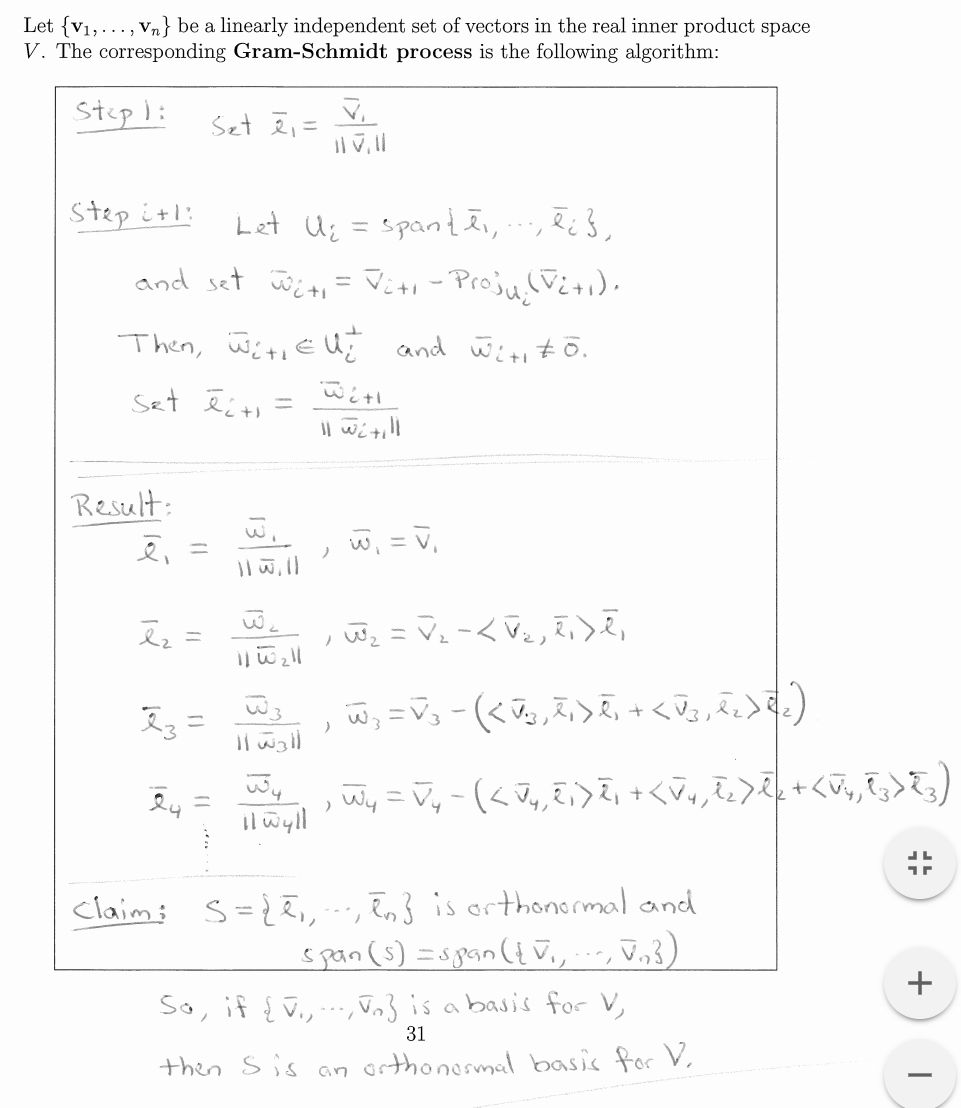 Let {v₁, . . . , vₙ} be a linearly independent set of vectors in the real inner product space
V. The corresponding Gram-Schmidt process is the following algorithm:
Step 1: Set ē₁ = v̄₁ / ||v̄₁||
Step i+1: Let Uᵢ = span{ē₁, ..., ēᵢ},
and set w̄ᵢ₊₁ = v̄ᵢ₊₁ - Proj_Uᵢ(v̄ᵢ₊₁).
Then, w̄ᵢ₊₁ ∈ Uᵢ^⊥ and w̄ᵢ₊₁ ≠ ō.
Set ēᵢ₊₁ = w̄ᵢ₊₁ / ||w̄ᵢ₊₁||
Result:
ē₁ = w̄₁ / ||w̄₁|| , w̄₁ = v̄₁
ē₂ = w̄₂ / ||w̄₂|| , w̄₂ = v̄₂ - <v̄₂, ē₁>ē₁
ē₃ = w̄₃ / ||w̄₃|| , w̄₃ = v̄₃ - (<v̄₃, ē₁>ē₁ + <v̄₃, ē₂>ē₂)
ē₄ = w̄₄ / ||w̄₄|| , w̄₄ = v̄₄ - (<v̄₄, ē₁>ē₁ + <v̄₄, ē₂>ē₂ + <v̄₄, ē₃>ē₃)
Claim: S = {ē₁, ..., ēₙ} is orthonormal and
span(S) = span({v̄₁, ..., v̄ₙ})
So, if {v̄₁, ..., v̄ₙ} is a basis for V,
31
then S is an orthonormal basis for V.